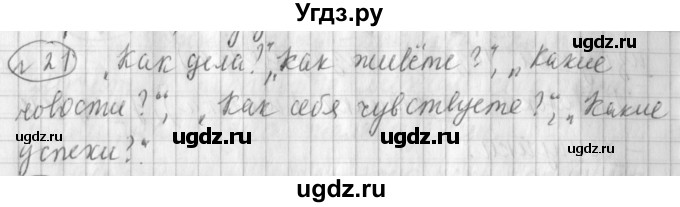 Угдз.ру
№ 21 „Как дела?“, „как живёте?“, „Какие
новости?“, „Как себя чувствуете?“, „Какие
успехи?“
ugdz.ru
ugdz.ru
ugdz.ru
ugdz.ru
ugdz.ru
ugdz.ru
ugdz.ru
ugdz.ru
ugdz.ru